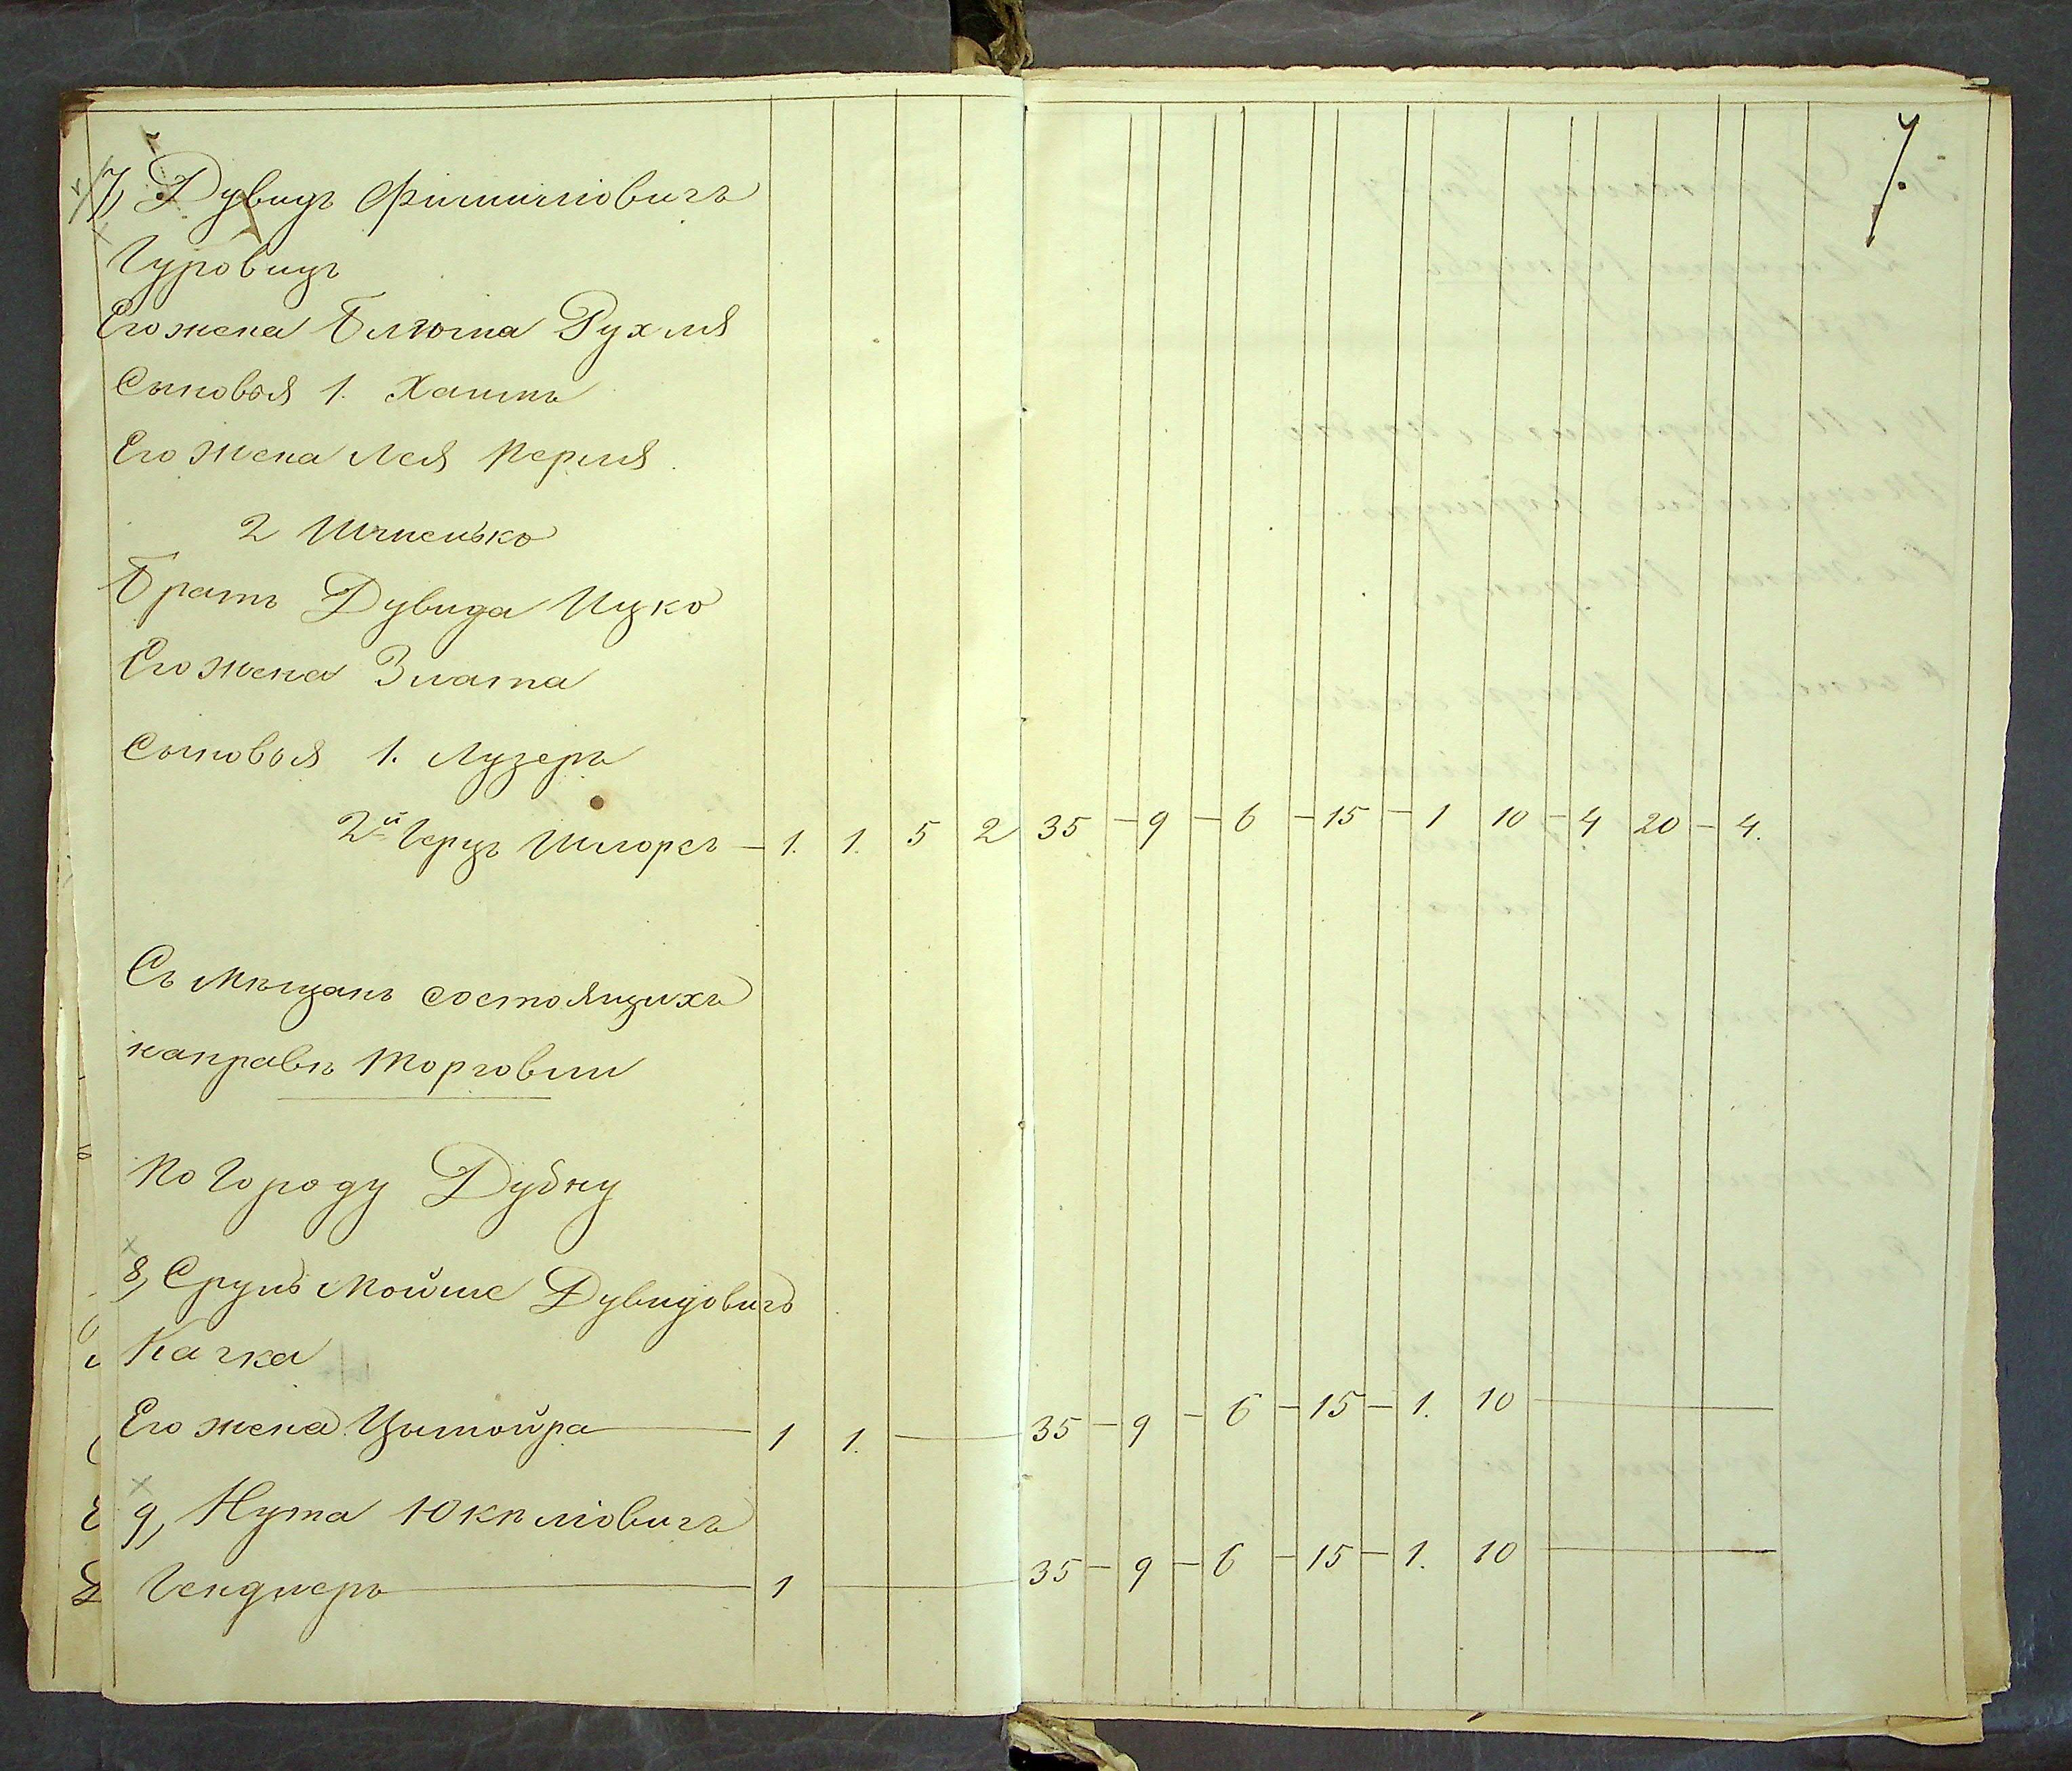 7, Дувидъ Фишиліовичъ
Гуровицъ
Его жена Блюма Рухля
Сыновья 1. Хаимъ
Его жена Лея Перля
2 Шмелько
Братъ Дувида Ицко
Его жена Злата
Сыновья 1. Лузеръ
2й Герцъ Шлорсъ — 1. 1. 5 2 35 — 9 — 6 — 15 — 1 10 — 4 20 — 4.
Съ Мѣщанъ состоящихъ
направѣ торговли
По Городу Дубну
8, Сруль Мойше Дувидовичъ
Качка
Его жена Цыпойра — 1 1. — 35 — 9 — 6 — 15 — 1. 10 —
9, Нута Юкиліовичъ
Гендлеръ — 1 — 35 — 9 — 6 — 15 — 1. 10 —
7.